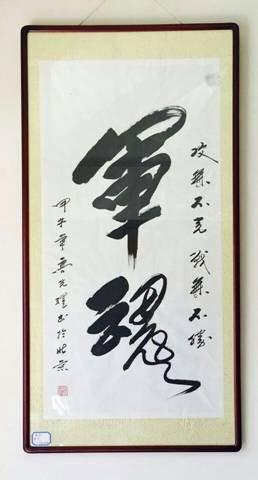 攻無不克戰無不勝
軍魂
甲午年書於北京